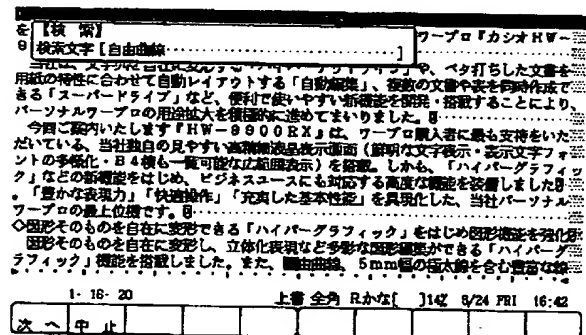 【検 索】
検索文字【自由曲線‥‥‥‥‥‥‥‥】
ワープロ『カシオHW－
を
9
自在に変形する「ハイパーグラフィック」や、ベタ打ちした文書を
用紙の特性に合わせて自動レイアウトする「自動編集」、複数の文書や表を同時作成で
きる「スーパードライブ」など、便利で使いやすい新機能を開発・搭載することにより、
パーソナルワープロの用途拡大を積極的に進めてまいりました。
今回ご案内いたします『HW－9900RX』は、ワープロ購入者に最も支持をいた
だいている、当社独自の見やすい高精細液晶表示画面（鮮明な文字表示・表示文字フォ
ントの多様化・B4横も一覧可能な広範囲表示）を搭載。しかも、「ハイパーグラフィッ
ク」などの新機能をはじめ、ビジネスユースにも対応する高度な機能を装備しました
。「豊かな表現力」「快適操作」「充実した基本性能」を具現化した、当社パーソナル
ワープロの最上位機です。
◇図形そのものを自在に変形できる「ハイパーグラフィック」をはじめ図形機能を強化
図形そのものを自在に変形し、立体化表現など多彩な図形編集ができる「ハイパーグ
ラフィック」機能を搭載しました。また、自由曲線、5mm幅の極太線を含む豊富な線
1- 16- 20 上書 全角 Rかな[ ]14Z 5/24 FRI 16:42
次 へ 中 止